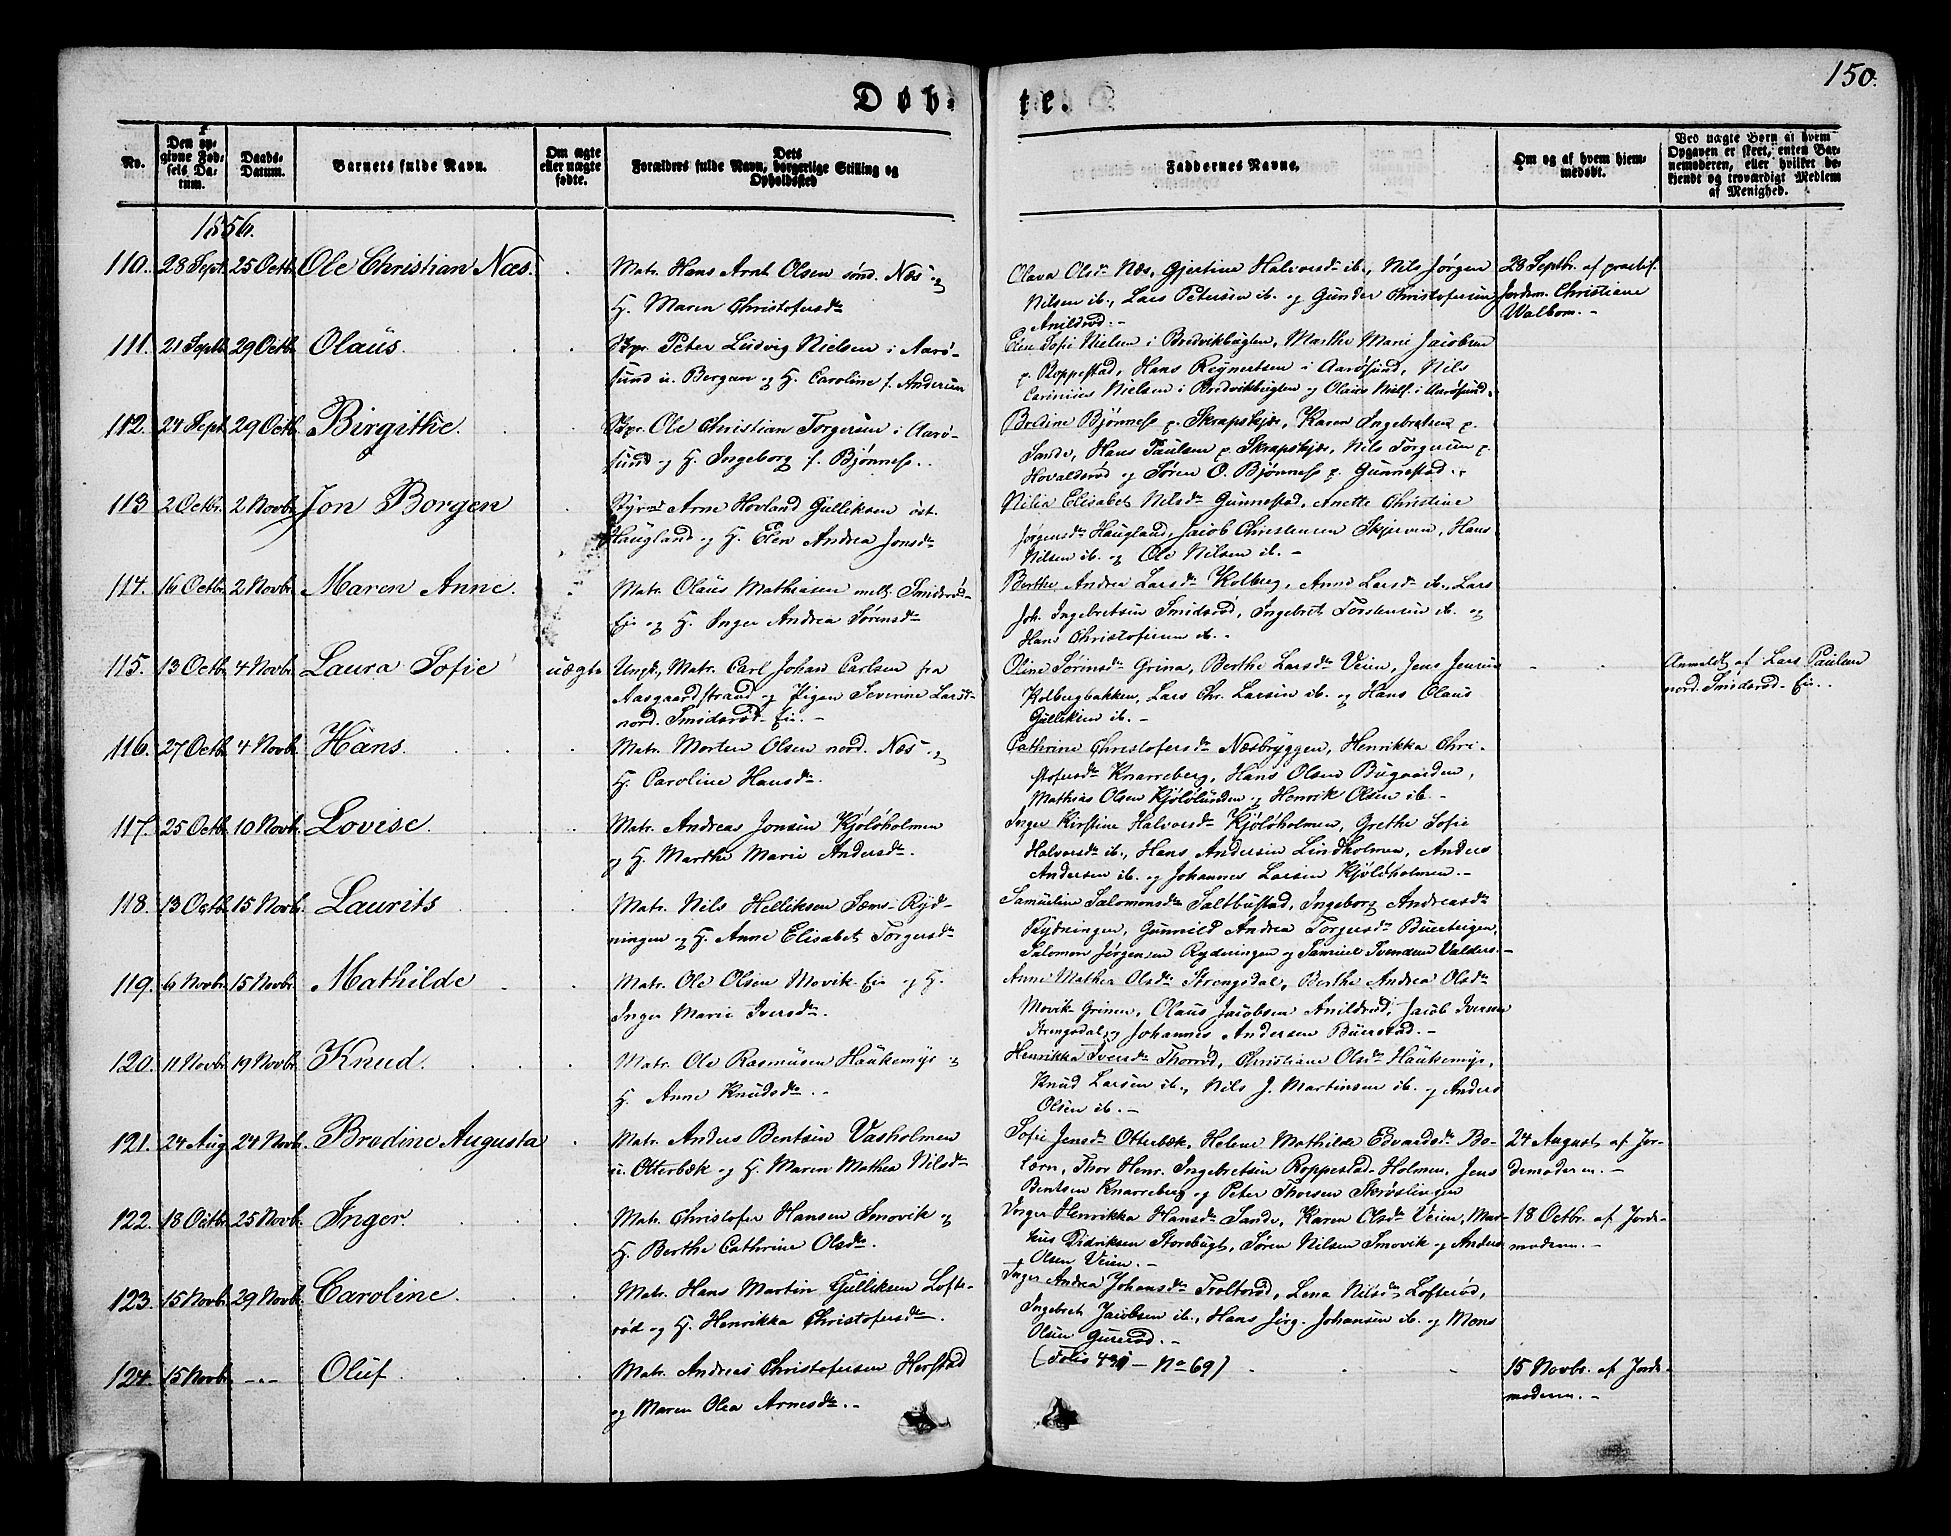 150.
Døb- te.
No.
Den opgivne Fødsels Datum.
Daabs-Datum.
Barnets fulde Navn.
Om ægte eller uægte fødte.
Forældres fulde Navn, Dets borgerlige Stilling og Opholdssted
Faddernes Navne.
Om og af hvem hjemmedøbt.
Ved uægte Børn af hvem Opgaven er skeet, enten Barnemoderen, eller hvilket bekjendt og troværdigt Medlem af Menighed.
1856.
110. 28 Sept. 25 Octb. Ole Christian Næs. Matr. Hans Arnt Olsen sønd. Næs og
H. Maren Christofersdr
Olava Olsdr Næs, Gjertine Halvorsdr ib., Nils Jørgen
Nilsen ib., Lars Petersen ib. og Gunder Christofersen
Anildrød.-
28 Septbr. af practis.
Jordem. Christiane
Walbom.-
111. 21 Septb. 29 Octb. Olaus. Skpr. Peter Ludvig Nielsen i Aarø-
sund u. Bergan og H. Caroline f. Andersen
Elen Sofie Nielsen i Bredvikbugten, Marthe Marie Jacobsen
p. Roppestad, Hans Reynertsen i Aarøsund, Nils
Carinius Nielsen i Bredvikbugten og Olaus Niels. i Aarøsund.
112. 24 Sept. 29 Octb. Birgithe. Skpr. Ole Christian Torgersen i Aarø-
sund og H. Ingeborg f. Bjønness.
Bredine Bjønness p. Skrapskjær, Karen Ingebretsen p.
Sande, Hans Paulsen p. Skrapskjær, Nils Torgersen p.
Hovalderød og Søren O. Bjønness p. Gunnestad.
113 2 Octbr. 2 Novbr. Jon Borgen Styrmd Arne Hovland Gulliksen øst.
Haugland og H. Elen Andrea Jonsdr
Nilia Elisabet Nilsdr Gunnestad, Anette Christine
Jørgensdr Haugland, Jacob Christensen Skjerven, Hans
Nilsen ib. og Ole Nilsen ib.-
114. 16 Octbr. 2 Novbr. Maren Anne. Matr. Olaus Mathiasen mell. Smidsrød-
Eie og H. Inger Andrea Sørensdr
Berthe Andrea Larsdr Kolberg, Anne Larsdr ib., Lars
Joh. Ingebretsen Smidsrød, Ingebret Torstensen ib. og
Hans Christofersen ib.-
115. 13 Octbr. 4 Novbr. Laura Sofie uægte Ungk. Matr. Carl Johan Carlsen fra
Aasgaardstrand og Pigen Severine Larsdr
nord. Smidsrød-Eie.-
Oline Sørensdr Grina, Berthe Larsdr Veien, Jens Jensen
Kolbergbakken, Lars Chr. Larsen ib. og Hans Olaus
Gulliksen ib.-
Anmeldt af Lars Paulsen
nord. Smidsrød-Eie.
116. 27 Octb. 4 Novb. Hans. Matr. Morten Olsen nord. Næs og
H. Caroline Hansdr.
Cathrine Christofersdr Næsbryggen, Henrikka Chri-
stofersdr Knarreberg, Hans Olsen Bugaarden,
Mathias Olsen Kjøløsunden og Henrik Olsen ib.-
117. 25 Octb. 10 Novb. Lovise. Matr. Andreas Jonsen Kjøløholmen
og H. Marthe Marie Andersdr.
Inger Kirstine Halvorsdr Kjøløholmen, Grethe Sofie
Halvorsdr ib., Hans Andersen Lindholmen, Anders
Andersen ib. og Johannes Larsen Kjøløholmen.-
118. 13 Octb. 15 Novb. Laurits Matr. Nils Helliksen Sæms-Ryd-
ningen og H. Anne Elisabet Torgersdr
Samuline Salomonsdr Saltbustad, Ingeborg Andreasdr
Rydningen, Gunnild Andrea Torgersdr Buerbergen,
Salomon Jørgensen Rydningen og Samuel Svendsen Valders.-
119. 6 Novbr 15 Novbr Mathilde Matr. Ole Olsen Movik-Eie og H.
Inger Marie Iversdr.
Anne Mathea Olsdr Strengsdal, Berthe Andrea Olsdr
Movik-Grinen, Olaus Jacobsen Anildrød, Jacob Iversen
Strengsdal og Johannes Andersen Buerstad.-
120. 11 Novbr 19 Novbr. Knud. Matr. Ole Rasmusen Haukemyr og
H. Anne Knudsdr.
Henrikka Iversdr Thorrød, Christiane Olsdr Haukemyr,
Knud Larsen ib., Nils J. Martinsen ib. og Anders
Olsen ib.-
121. 24 Aug. 24 Novb. Bredine Augusta Matr. Anders Bentsen Vasholmen
u. Otterbæk og H. Maren Mathea Nilsdr
Sofie Jensdr Otterbæk, Helene Mathilde Edvardsdr Bo-
lærn, Thor Henr. Ingebretsen Roppestad-Holmen, Jens
Bentsen Knarreberg og Peter Thorsen Skrøslingen
24 August af Jor-
demoderen.-
122. 18 Octbr. 25 Novb. Inger. Matr. Christofer Hansen Smovik og
H. Berthe Cathrine Olsdr.
Inger Henrikka Hansdr Sande, Karen Olsdr Veien, Mar-
kus Didriksen Storebugt, Søren Nilsen Smovik og Anders
Olsen Veien.-
18 Octbr. af Jorde-
moderen.-
123. 15 Novbr. 29 Novb. Caroline. Matr. Hans Martin Gulliksen Lofte-
rød og H. Henrikka Christofersdr.
Inger Andrea Johansdr Troltrød, Lena Nilsdr Lofterød,
Ingebret Jacobsen ib., Hans Jørg. Johansen ib. og Mons
Olsen Gurerød.-
124. 15 Novbr. -.- Oluf. Matr. Andreas Christofersen Herstad
og Maren Olea Arnesdr.-
(Folio 431 - No 69)
15 Novbr. af Jorde-
moderen.-